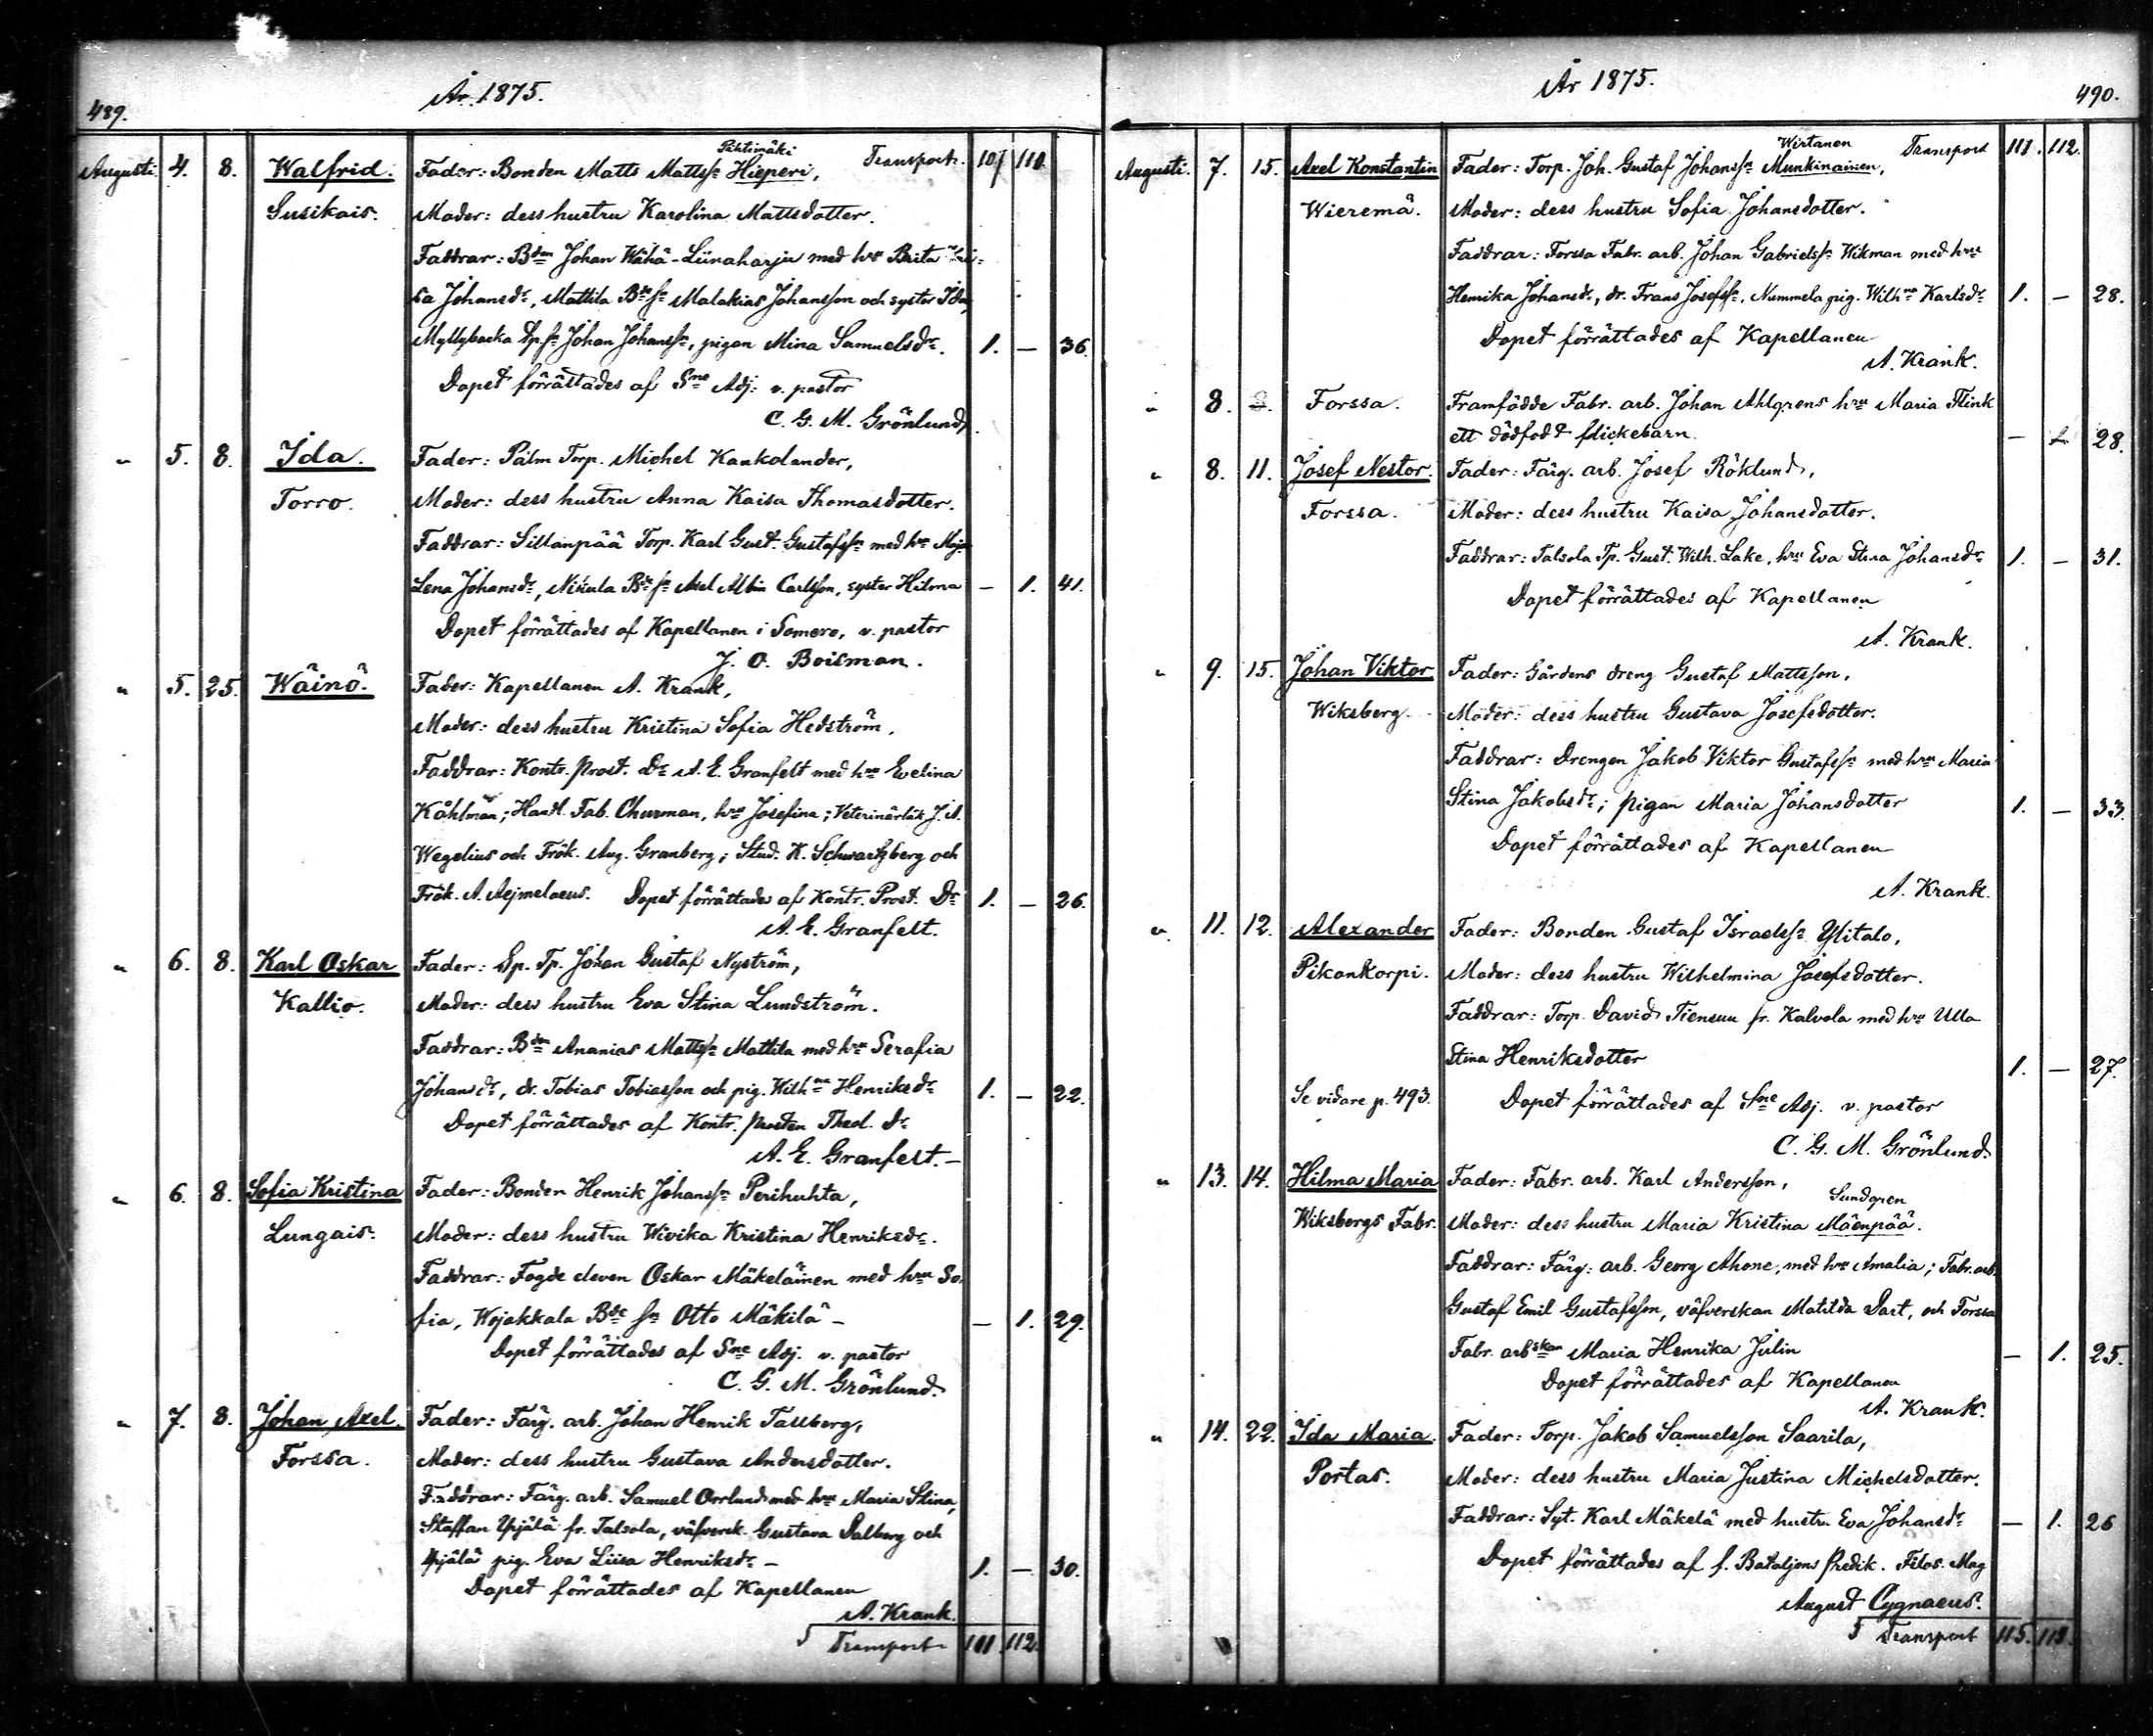 489.
År 1875.
Pihtimäki
Augusti 4. 8. Walfrid. Fader: Bonden Matts Mattss: Hieperi, Transport. 107 110
Susikais. Moder: dess hustru Karolina Mattsdotter.
Faddrar: Bden Johan Wähä-Liinaharju med hru Brita
sa Johansdr, Mattila Bde sn Malakias Johansson och syster Ida,
Myllybacka Tp. sn Johan Johanss:, pigan Mina Samuelsdr. 1. — 36.
Dopet förrättades af Sne Adj. v. pastor
C. G. M. Grönlund.
" 5. 8. Ida. Fader: Palm Torp. Michel Kankolander,
Torro. Moder: dess hustru Anna Kaisa Thomasdotter.
Faddrar: Sillanpää Torp. Karl Gust. Gustafss: med hru Maja
Lena Johansdr, Nikula Bde sn Axel Albin Carlsson, syster Hilma — 1. 41.
Dopet förrättades af Kapellanen i Somero, v. pastor
J. O. Boisman.
" 5. 25. Wäinö. Fader: Kapellanen A. Krank,
Moder: dess hustru Kristina Sofia Hedström.
Faddrar: Kontr. Prost. Dr A. E. Granfelt med hru Evelina
Kåhlman; Handl. Fab. Churman, hru Josefina; Veterinärläk J. A.
Wegelius och Frök. Aug. Granberg; Stud. K. Schwartzberg och
Frök. A. Aejmelaeus. Dopet förrättades af Kontr. Prost. Dr 1. — 26.
A. E. Granfelt.
" 6. 8. Karl Oskar Fader: Sp. Tp. Johan Gustaf Nyström,
Kallio. Moder: dess hustru Eva Stina Lundström.
Faddrar: Bden Ananias Mattss: Mattila med hru Serafia
Johansdr, dr. Tobias Tobiasson och pig. Wilhna Henriksdr 1. — 22.
Dopet förrättades af Kontr. Prosten Theol. Dr
A. E. Granfelt. —
" 6. 8. Sofia Kristina Fader: Bonden Henrik Johanss: Perihuhta,
Lungais. Moder: dess hustru Wivika Kristina Henriksdr.
Faddrar: Fogde eleven Oskar Mäkeläinen med hru So-
fia, Wojakkala Bde sn Otto Mäkilä — — 1. 29.
Dopet förrättades af Sne Adj. v. pastor
C. G. M. Grönlund.
" 7. 8. Johan Axel. Fader: Färg. arb. Johan Henrik Tallberg,
Forssa. Moder: dess hustru Gustava Andersdotter.
Faddrar: Färg. arb. Samuel Orrlund med hru Maria Stina,
Staffan Ypjälä fr. Talsola, väfversk. Gustava Dalberg och
Ypjälä pig. Eva Liisa Henriksdr — 1. — 30.
Dopet förrättades af Kapellanen
A. Krank.
Transport 111. 112.
År 1875.
490.
Wirtanen
Augusti. 7. 15. Axel Konstantin Fader: Torp. Joh. Gustaf Johanss: Munkinainen, Transport 111. 112.
Wieremä. Moder: dess hustru Sofia Johansdotter.
Faddrar: Forssa Fabr. arb. Johan Gabrielss: Wikman med hru
Henrika Johansdr, dr. Frans Josefss:, Nummela pig. Wilhna Karlsdr 1. — 28.
Dopet förrättades af Kapellanen
A. Krank.
" 8. 8. Forssa. Framfödde Fabr. arb. Johan Ahlgrens hru Maria Flink
ett dödfödt flickebarn. — 1. 28.
" 8. 11. Josef Nestor. Fader: Färg. arb. Josef Röklund,
Forssa. Moder: dess hustru Kaisa Johansdotter.
Faddrar: Talsola Tp. Gust. Wilh. Lake, hru Eva Stina Johansdr 1. — 31.
Dopet förrättades af Kapellanen
A. Krank.
" 9. 15. Johan Viktor Fader: Gårdens dreng Gustaf Mattsson,
Wiksberg. Moder: dess hustru Gustava Josefsdotter.
Faddrar: Drengen Jakob Viktor Gustafss: med hru Maria
Stina Jakobsdr; pigan Maria Johansdotter 1. — 33.
Dopet förrättades af Kapellanen
A. Krank.
" 11. 12. Alexander Fader: Bonden Gustaf Israelss: Ylitalo,
Pikonkorpi. Moder: dess hustru Wilhelmina Josefsdotter.
Faddrar: Torp. David Tiensuu fr. Kalvola med hru Ulla
Stina Henriksdotter 1. — 27.
Se vidare p. 493. Dopet förrättades af Sne Adj. v. pastor
C. G. M. Grönlund.
" 13. 14. Hilma Maria Fader: Fabr. arb. Karl Andersson,
Sundgren
Wiksbergs Fabr. Moder: dess hustru Maria Kristina Mäenpää.
Faddrar: Färg. arb. Georg Ahone, med hru Amalia; Fabr. arb.
Gustaf Emil Gustafsson, väfverskan Matilda Dart, och Forssa
Fabr. arbskan Maria Henrika Julin — 1. 25.
Dopet förrättades af Kapellanen
A. Krank.
" 14. 22. Ida Maria. Fader: Torp. Jakob Samuelsson Saarila,
Portas. Moder: dess hustru Maria Justina Michelsdotter.
Faddrar: Syt. Karl Mäkelä med hustru Eva Johansdr — 1. 26
Dopet förrättades af f. Bataljons Predik. Filos. Mag
August Cygnaeus.
Transport 115. 115.